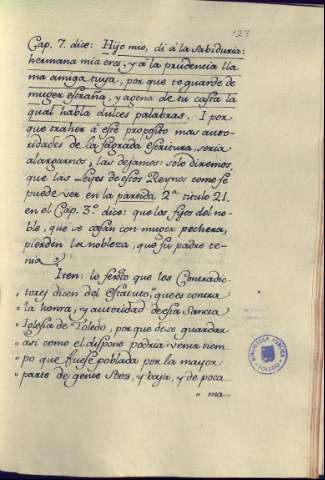 123
Cap. 7. dice: Hijo mio, di à la Sabiduria:
hermana mia eres, y à la prudencia lla
ma amiga tuya, por que te guarde de
muger estraña, y agena de tu casta la
qual habla dulces palabras. I por
que traher à este proposito mas auto-
ridades de la sagrada escritura, seria
alargarnos, las dejamos: solo diremos,
que las Leyes de estos Reynos como se
puede ver en la partida 2ª titulo 21.
en el Cap. 3º dice: que los fijos del no-
ble, que se casan con muger pechera,
pierden la nobleza, que su padre te-
nia
Iten: lo sexto que los Contradic-
" tores dicen del Estatuto, que es contra
" la honra, y autoridad de esta Santa
" Iglesia de Toledo, por que de se guardar
" asi como el dispone podria venir tiem
" po que fuese poblada por la mayor
" parte de gente soez, y baja, y de poca
" ma-
BIBLIOTECA PUBLICA
TOLEDO